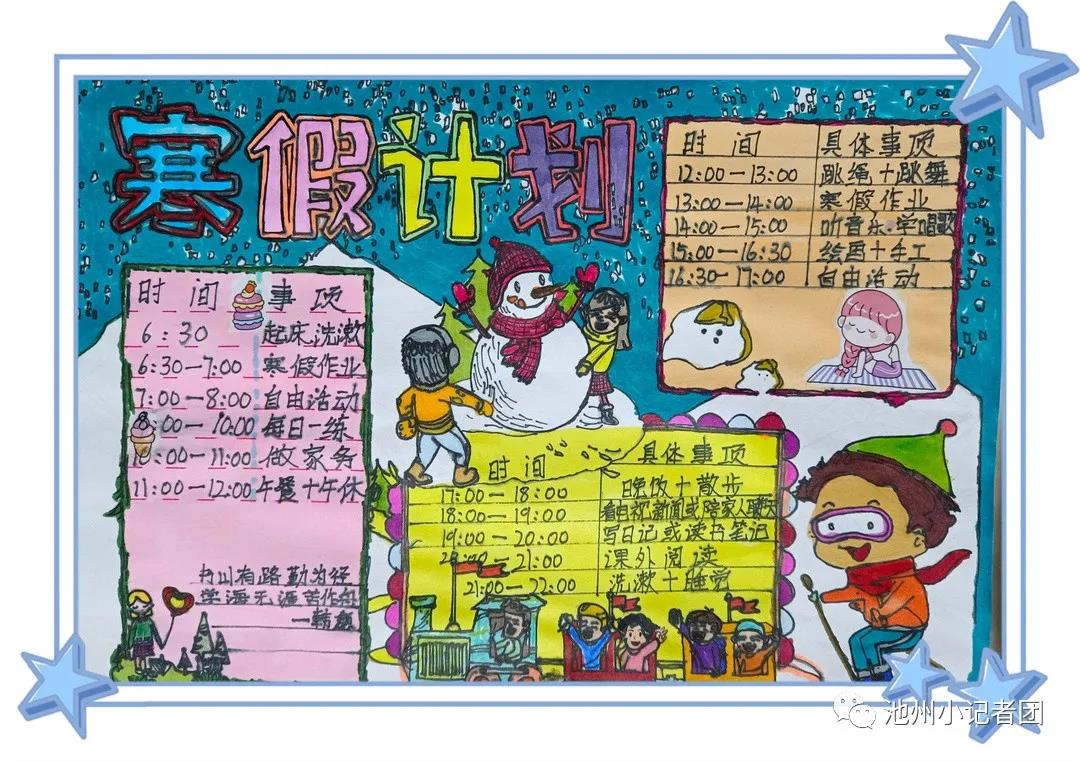 寒假计划
时间 事项
6:30 起床洗漱
6:30—7:00 寒假作业
7:00—8:00 自由活动
:00—10:00 每日一练
10:00—11:00 做家务
11:00—12:00 午餐+午休
书山有路勤为径
学海无涯苦作舟
—韩愈
时间 具体事项
12:00—13:00 跳绳+跳舞
13:00—14:00 寒假作业
14:00—15:00 听音乐·学唱歌
15:00—16:30 绘画+手工
16:30—17:00 自由活动
时间 具体事项
17:00—18:00 晚饭+散步
18:00—19:00 看电视新闻或陪家人聊天
19:00—20:00 写日记或读书笔记
20:00—21:00 课外阅读
21:00—22:00 洗漱+睡觉
池州小记者团